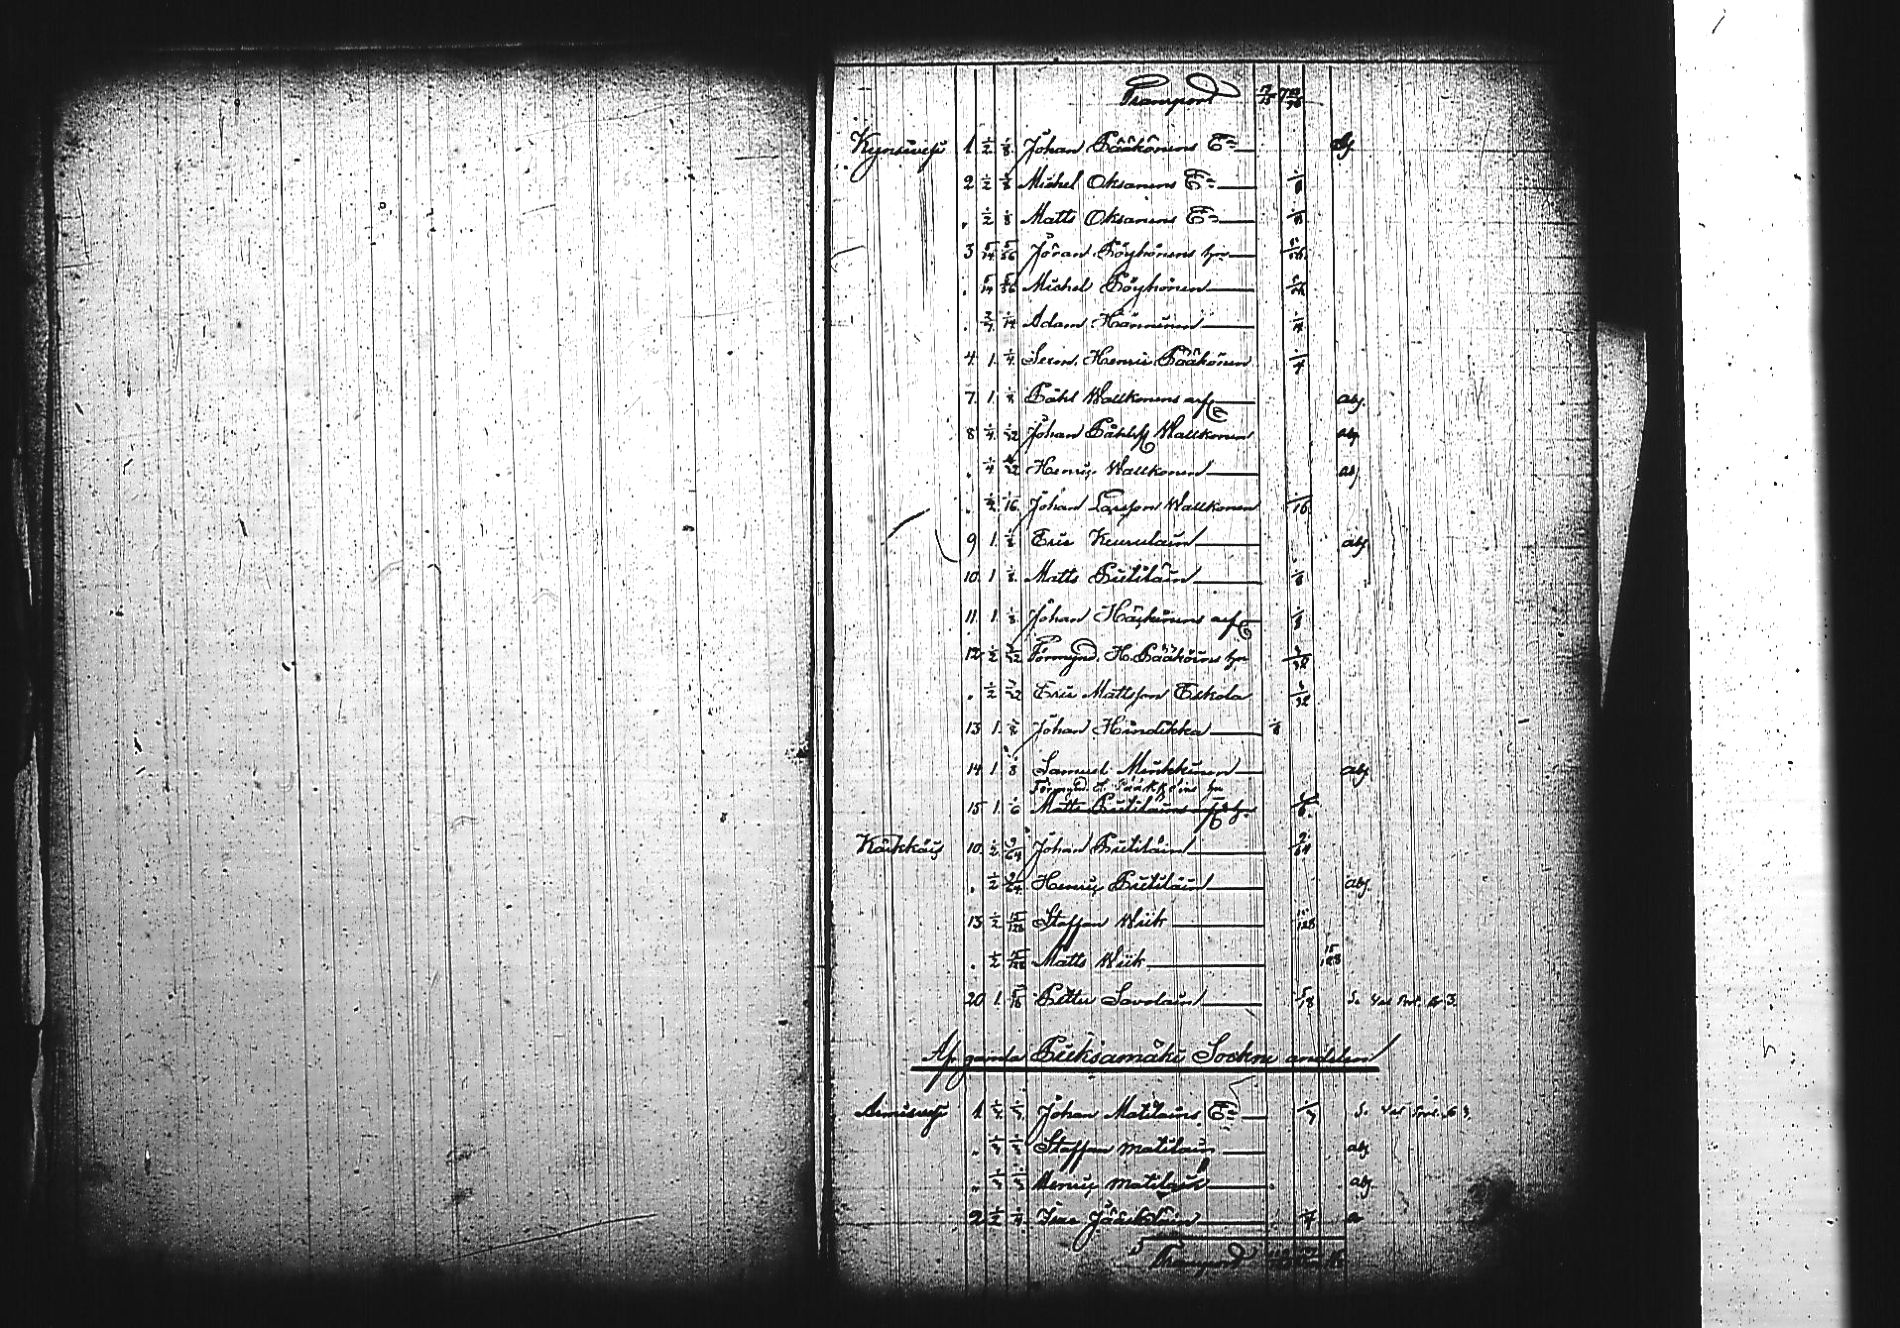 Transport
Kynsivesi 1 1/2 1/8 Johan Pääkönens E=
2 1/2 1/8 Michel Oksanens E= 1/8
" 1/2 1/8 Matts Oksanens E= 1/8
3 5/14 5/56 Jöran Pöyhönens hr 5/56
" 5/14 5/56 Michel Pöyhönen 5/56
" 2/7 1/14 Adam Hänninen 1/14
4 1 1/4 Serm. Henric Pääkönen 1/4
7 1 1/8 Påhl Wallkonens arf. abs.
8 1/4 1/32 Johan Påhlss Wallkonen abs
" 1/4 1/32 Henric Wallkonen abs
" 1/2 1/16 Johan Larsson Wallkonen 1/16
9 1 1/8 Eric Keurulain abs
10 1 1/8 Matts Pietiläin 1/8
11 1 1/8 Johan Häykinens arf 1/8
12 1/2 3/32 Förmynd. H. Pääköins hr 3/32
" 1/2 3/32 Eric Mattsson Eskola 3/32
13 1 1/8 Johan Hindikka 1/8
14 1 1/8 Samuel Minkkinen abs
Förmynd. H. Pääkköins hr
15 1 1/6 Matts Pietiläins 1/6
Kärkkäis 10 1/2 9/64 Johan Pietiläin 9/64
" 1/2 9/64 Henric Pietiläin abs.
13 1/2 15/128 Staffan Wiik 15/128
" 1/2 15/128 Matts Wiik 15/128
20 1 5/18 Petter Savolain 5/18
Af gamla Pieksämäki Sockne andelen
Armisvesi 1 Johan Matilains E=
" Staffan Matilain abs
" Henric Matilain abs
2 1/2 1/4
Transport